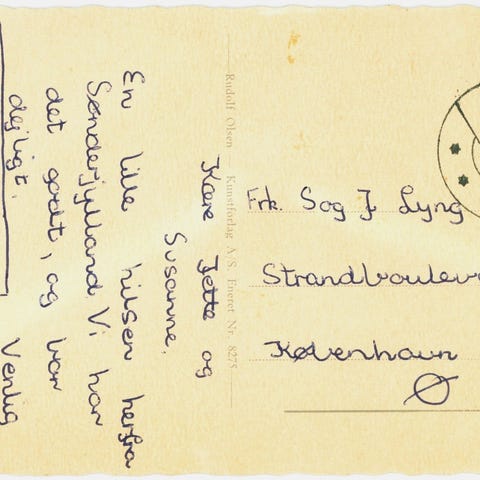 Kære Jette og
Susanne.
En lille hilsen herfra
Sønderjylland. Vi har
det godt, og har
dejligt.
Venlig
Rudolf Olsen — Kunstforlag A/S. Eneret Nr. 8275
Frk. S og J. Lyng
Strandboulev
København
Ø